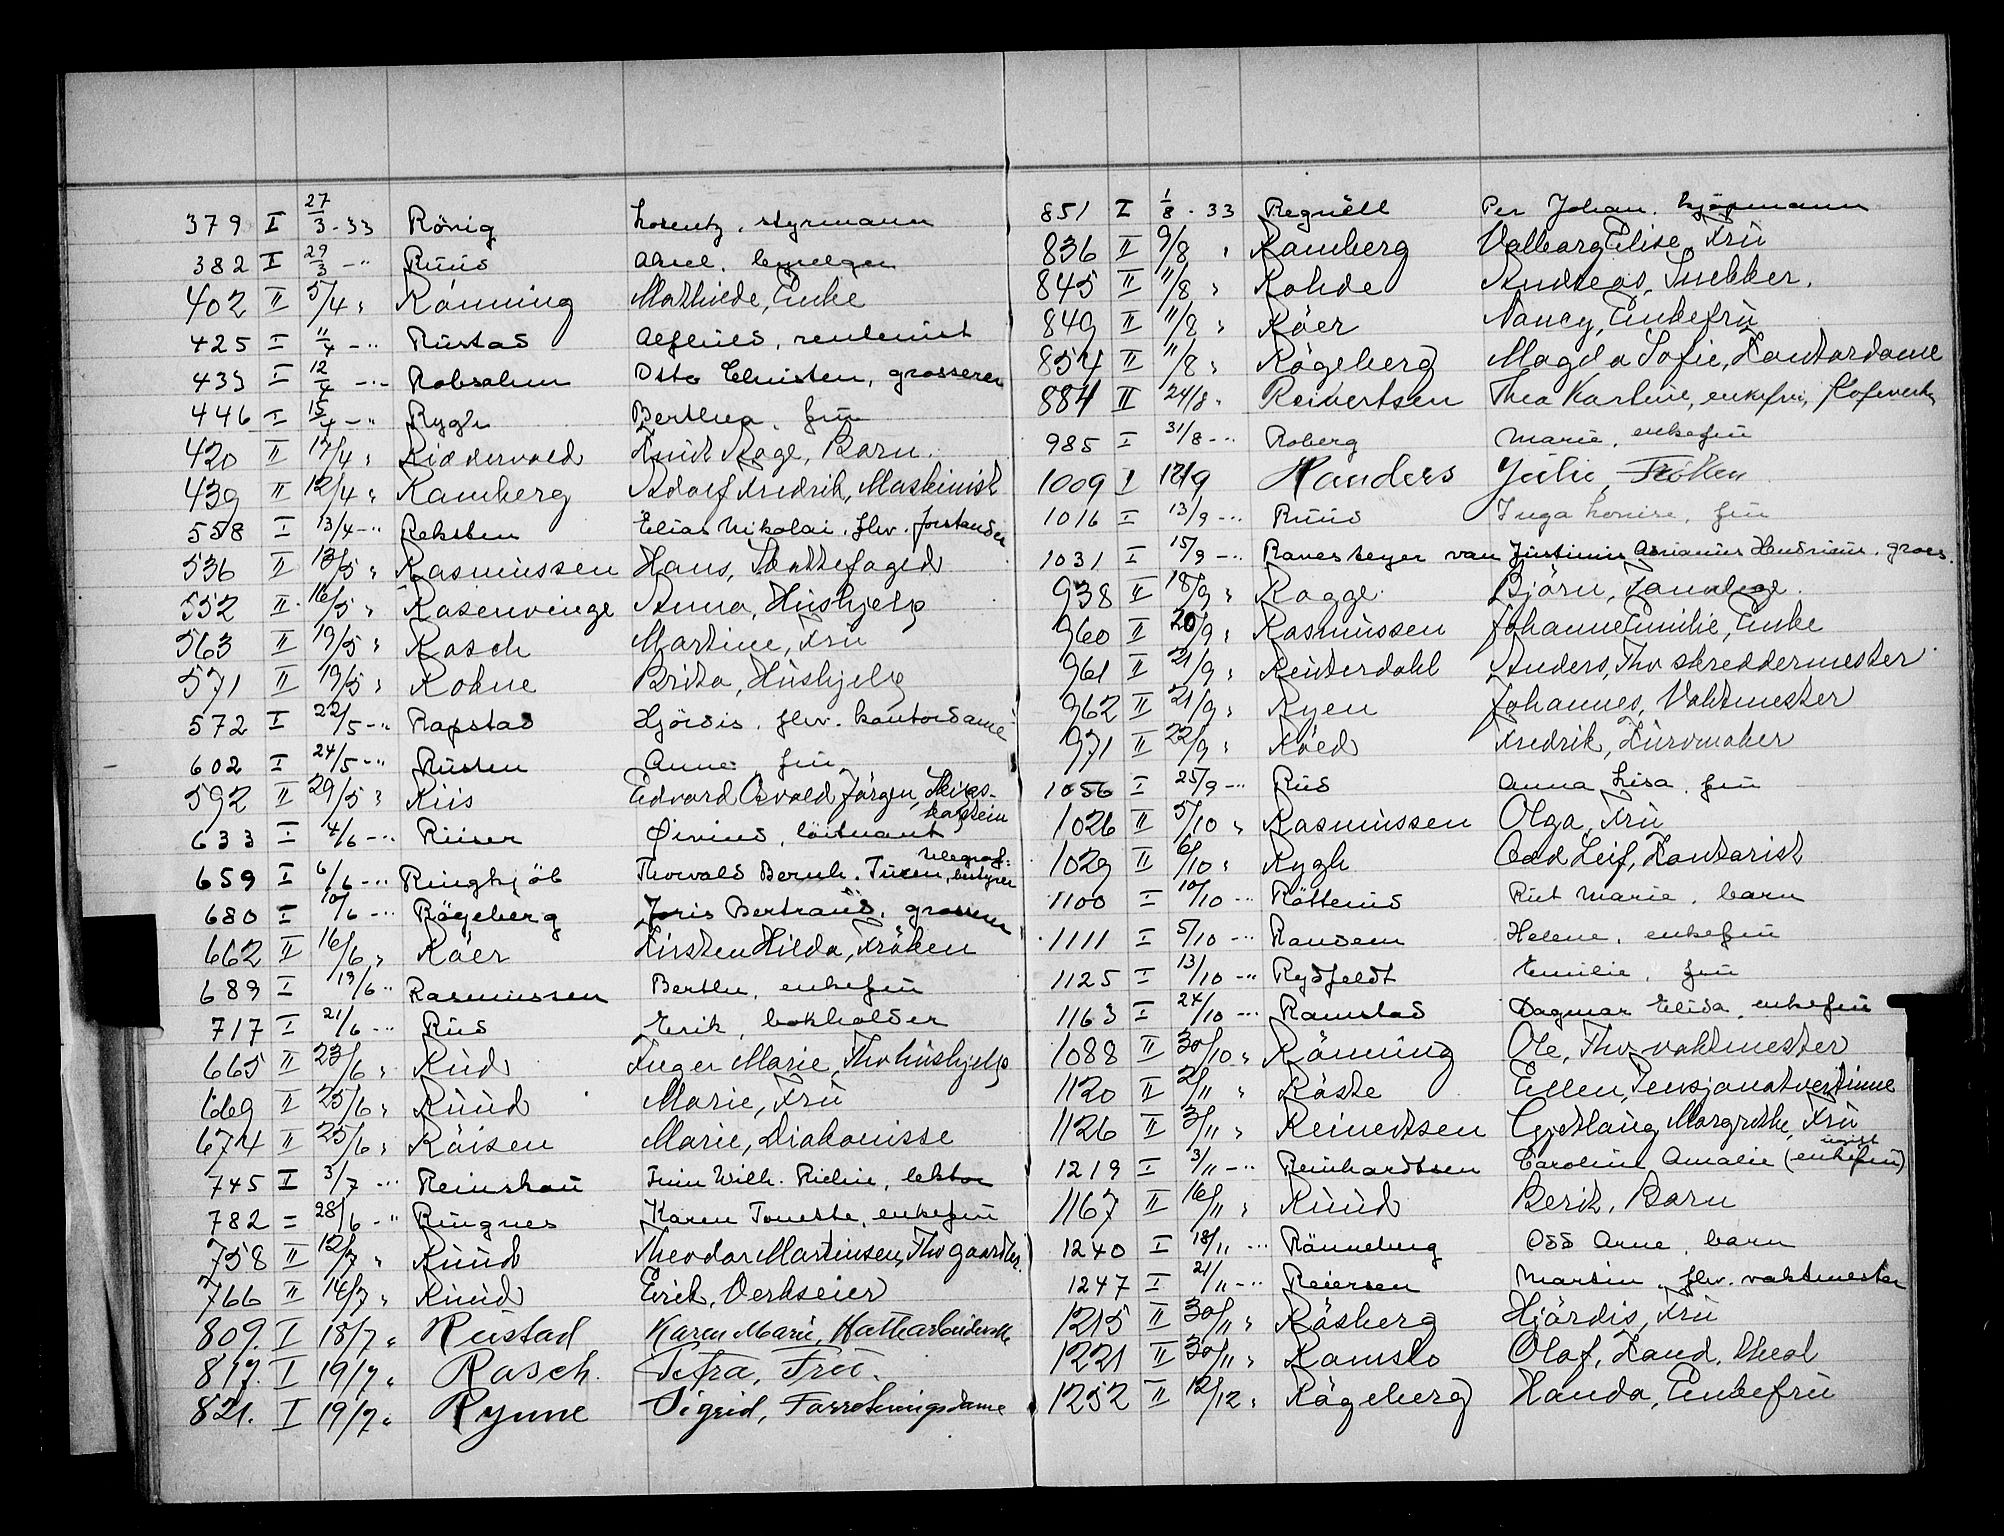 379 I 27/3-33 Rönig Lorentz, styrmann
382 I 29/3 -" Ruud
402 II 5/4 " Rönning Mathilde, Enke
425 I 11/4 -" Rustad Alfhild, rentenist
433 I 12/4 -" Robsahm Otto Christen, grosserer
446 I 15/4 -" Rygh Berthea, fru
420 II 17/4 " Knut Aage, Barn.
439 II 12/4 " Ramberg Adolf Fredrik, Maskinist
558 I 13/4 -" Reksten Elias Nikolai, fhv. forstander
536 II 13/5 " Rasmussen Hans, Skattefoged
552 II 16/5 " Rosenvinge Anna, Hushjelp
563 II 19/5 " Rosch Martine, Fru
571 II 19/5 " Rohne Brita, Hushjelp
572 I 22/5 -" Rapstad Hjördis, fhv. kontordame
602 I 24/5 -" Rusten Anna, fru
592 II 29/5 " Riis Edvard Osvald Jörgen, Skibs-
kaptein
633 I 4/6 -" Riiser Øivind, löitnant
659 I 6/6 -" Ringhjöb Thorvald Bernh. Tuxen, telegraf-
bestyrer
680 I 10/6 -" Rögeberg Joris Bertrand, grosserer
662 II 16/6 " Röer Kirsten Hilda, Fröken
689 I 19/6 -" Rasmussen Berthe, enkefru
717 I 21/6 -" Rud Erik, bokholder
665 II 23/6 " Rud Inger Marie, Fhv hushjelp
669 II 25/6 " Ruud Marie, Fru
674 II 25/6 " Röisen Marie, Diakonisse
745 I 3/7 -" Reinskou Wilh. lektor
782 = 28/6 -" Ringnes Karen Tonette, enkefru
758 II 12/7 " Ruud Theodor Martinsen, Fhv gaardbr.
766 II 14/7 " Ruud Erik, Verkseier
809. I 18/7 " Rustad Karen Marie, Hattearbeiderske
817. I 19/7 " Rasch. Petra, Fru.
821. I 19/7 " Rynne Sigrid, Forretningsdame
851 I 1/8 - 33 Regnéll Per Johan, kjöpmann
836 II 9/8 " Ramberg Valborg Elise, Fru
845 II 11/8 " Rohde Andreas, Snekker.
849 II 11/8 " Röer Nancy, Enkefru
854 II 11/8 " Rögeberg Magda Sofie, Kontordame
884 II 24/8 " Reivertsen Thea Karline, enkefru,
985 I 31/8 -" Roberg Marie, enkefru
1009 I 12/9 Randers Julie, Fröken
1016 I 13/9 -" Ruud Inga Lovise, fru
1031 I 15/9 -" Ravesteyer van Justinus Adrianus Hendricus, gross.
938 II 18/9 " Rogge Björn, Tannlege.
960 II 20/9 " Rasmussen Johanne Emilie, Enke
961 II 21/9 " Reuterdahl Anders, Fhv skreddermester
962 II 21/9 " Ryen Johannes, Vaktmester
971 II 22/9 " Röed Fredrik, Kurvmaker
1056 I 25/9 -" Rud Anna Lisa, fru
1026 II 5/10 " Rasmussen Olga, Fru
1029 II 6/10 " Rygh Odd Leif, Kontorist
1100 I 10/10 -" Röttenud Rut Marie, barn
1111 I 5/10 -" Randem Helene, enkefru
1125 I 13/10 -" Rydfeldt Emilie, fru
1163 I 24/10 -" Ramstad Dagmar Elida, enkefru
1088 II 30/10 " Rönning Ole, Fhv vaktmester
1120 II 2/11 " Röste Ellen, Pensjonatvertinne
1126 II 3/11 " Reinertsen Gjetlaug Margrethe, Fru
1219 I 3/11 -" Reinhardtsen Caroline Amalie (ugift
enkefru)
1167 II 16/11 " Ruud Berit, Barn
1240 I 18/11 -" Rönneberg Odd Arne, barn
1247 I 21/11 -" Reiersen Martin, fhv. vaktmester
1215 II 30/11 " Rösberg Hjördis, Fru
1221 II 30/11 " Romslo Olaf, Kand. theol
1252 II 12/12 " Rögeberg Handa, Enkefru